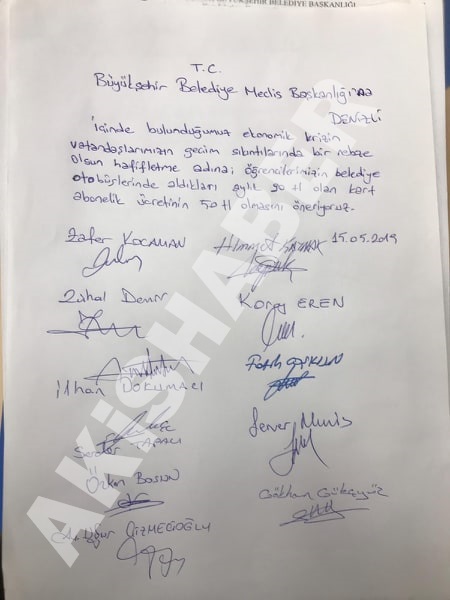 BELEDİYE BAŞKANLIĞI
T.C.
Büyükşehir Belediye Meclis Başkanlığı'na
DENİZLİ
İçinde bulunduğumuz ekonomik krizin
vatandaşlarımızın geçim sıkıntılarında bir nebze
olsun hafifletme adına; öğrencilerimizin belediye
otobüslerinde aldıkları aylık 90 tl olan kart
abonelik ücretinin 50 tl olmasını öneriyoruz.
Zafer KOCAMAN
15.05.2019
Zühal Demir
Koray EREN
İlhan DOKUMACI
Fatih
Server Muniş
Serdar
Özkan Bostan
Gökhan Gökçyüz
ÇİZMECİOĞLU
AKİSHABER